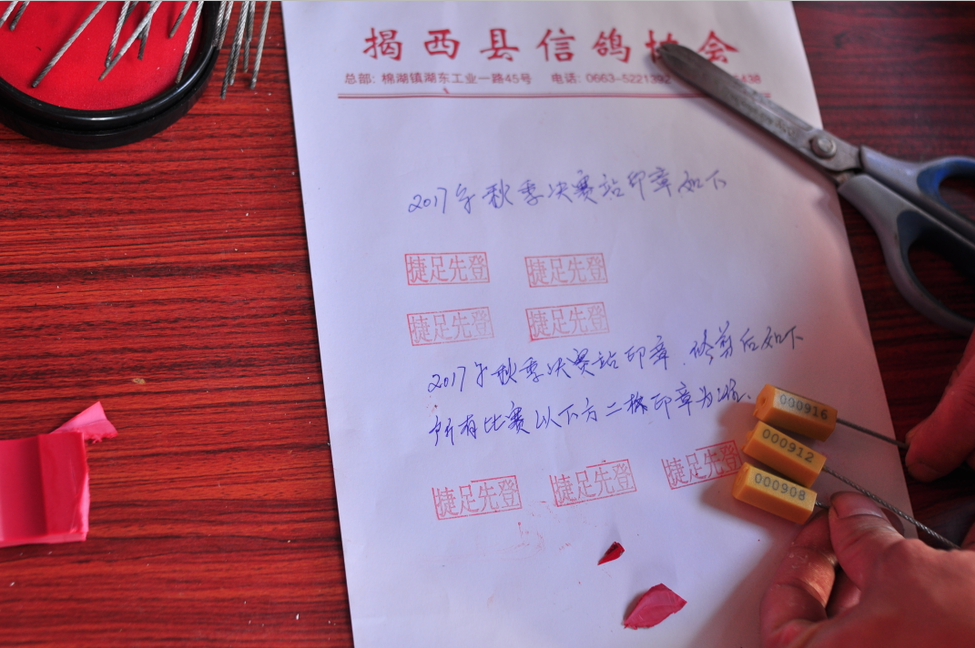 揭西县信鸽协会
总部: 棉湖镇湖东工业一路45号 电话: 0663-5221392 438
2017年秋季决赛站印章如下
捷足先登 捷足先登
捷足先登 捷足先登
2017年秋季决赛站印章.修剪后如下
所有比赛以下方二格印章为准.
捷足先登 捷足先登 捷足先登
000916
000912
000908